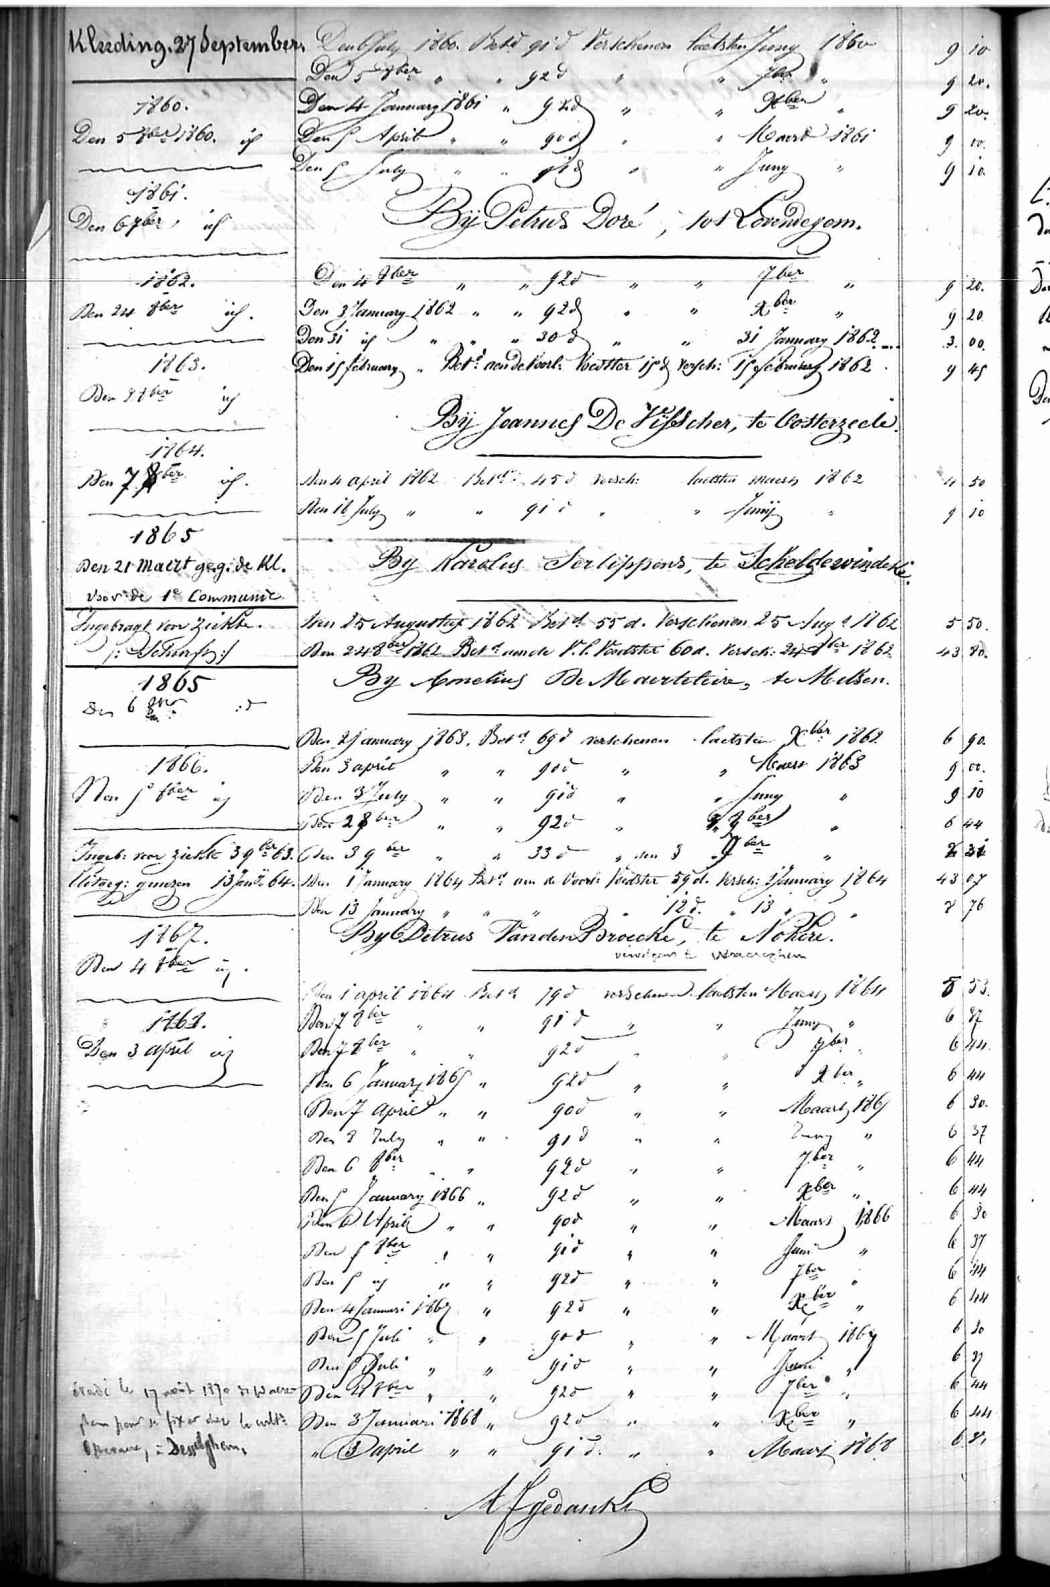 Kleeding. 27 September.
1860.
Den 5 8ber 1860. id
1861.
Den 6 7ber, id
1862.
Den 24 8ber id.
1863.
Den 8ber id
1864.
Den 7 8ber id.
1865
Den 21 Maert geg: de Kl.
voor de 1e Communie
Ingebragt voor ziekte.
1865
Den 6 : d
1866.
Den 5 8ber id
Ingeb: voor ziekte 3 9ber 63.
Uitgeg: genezen 13 Janry 64.
1867.
Den 4 8ber id.
1868.
Den 3 april id
le 17 août 1870
pour se fixer chez le cult:
à Desselghem,
Den 6 July 1860. Betd 91 d Verschenen laetsten Juny 1860 9 10
Den 5 8ber " " 92 d " " 7ber " 9 20.
Den 4 January 1861 " 92 d " " Xber " 9 20.
Den 5 April " " 90 d " " Maert 1861 9 00.
Den 5 July " " 91 d " " Juny " 9 10
By Petrus Doré, tot Lovendegem.
Den 4 8ber " " 92 d " " 7ber " 9 20.
Den 3 January 1862 " " 92 d " " Xber " 9 20
Den 31 id " " " 30 d " " 31 January 1862 3. 00.
Den 15 february " Betd aen de Voorl: Voedster 15 d versch: 15 february 1862 9 45
By Joannes De Visscher, te Oosterzeele.
Den 4 april 1862 Betd 45 d versch: laetsten maert 1862 4 50
Den 16 July " " 91 d " " Junij " 9 10
By Karolus Serlippens, te Scheldewindeke.
Den 25 Augusty 1862 Betd 55 d. Verschenen 25 Augt 1862 5 50.
Den 24 8ber 1862 Betd aen de V. l. Voedster 60 d. versch: 24 8ber 1862 43 80.
By Cornelius De Maerteleire, te Melsen.
Den 2 January 1863. Betd 69 d verschenen laetsten Xber 1862. 6 90.
Den 3 april " " 90 d " " Maert 1863 9 00.
Den 3 July " " 91 d " " Juny " 9 10
Den 2 8ber " " 92 d " " 7ber " 6 44
Den 3 9ber " " 33 d " den 3 9ber " 2 31
Den 1 January 1864 Betd aen de Voorl: Voedster 59 d. Versch: 1 January 1864 43 07
Den 13 January " " " " 12 d. " 13 " " 8 76
By Petrus VandenBroecke, te Nokere.
vervolgens te Waereghem
Den 1 april 1864 Betd 79 d verschenen laetsten Maert 1864 5 53.
Den 7 8ber " " 91 d " " Juny " 6 37
Den 7 8ber " " 92 d " " 7ber " 6 44.
Den 6 January 1865 " 92 d " " Xber " 6 44
Den 7 April " " 90 d " " Maart 1865 6 30.
Den 8 July " " 91 d " " Juny " 6 37
Den 6 8ber " " 92 d " " 7ber " 6 44
Den 5 January 1866 " 92 d " " Xber " 6 44
Den 6 April " " 90 d " " Maart 1866 6 30
Den 5 8ber " " 91 d " " Juni " 6 37
Den 5 id " " 92 d " " 7ber " 6 44
Den 4 Januari 1867 " 92 d " " Xber " 6 44
Den 5 Juli " " 90 d " " Maart 1867 6 30
Den 5 Juli " " 91 d " " Juni " 6 37
Den 4 8ber " " 92 d " " 7ber " 6 44
Den 3 Januari 1868 " 92 d " " Xber " 6 44
" 3 april " " 91 d. " " Maart 1868 6 37
Afgedankt